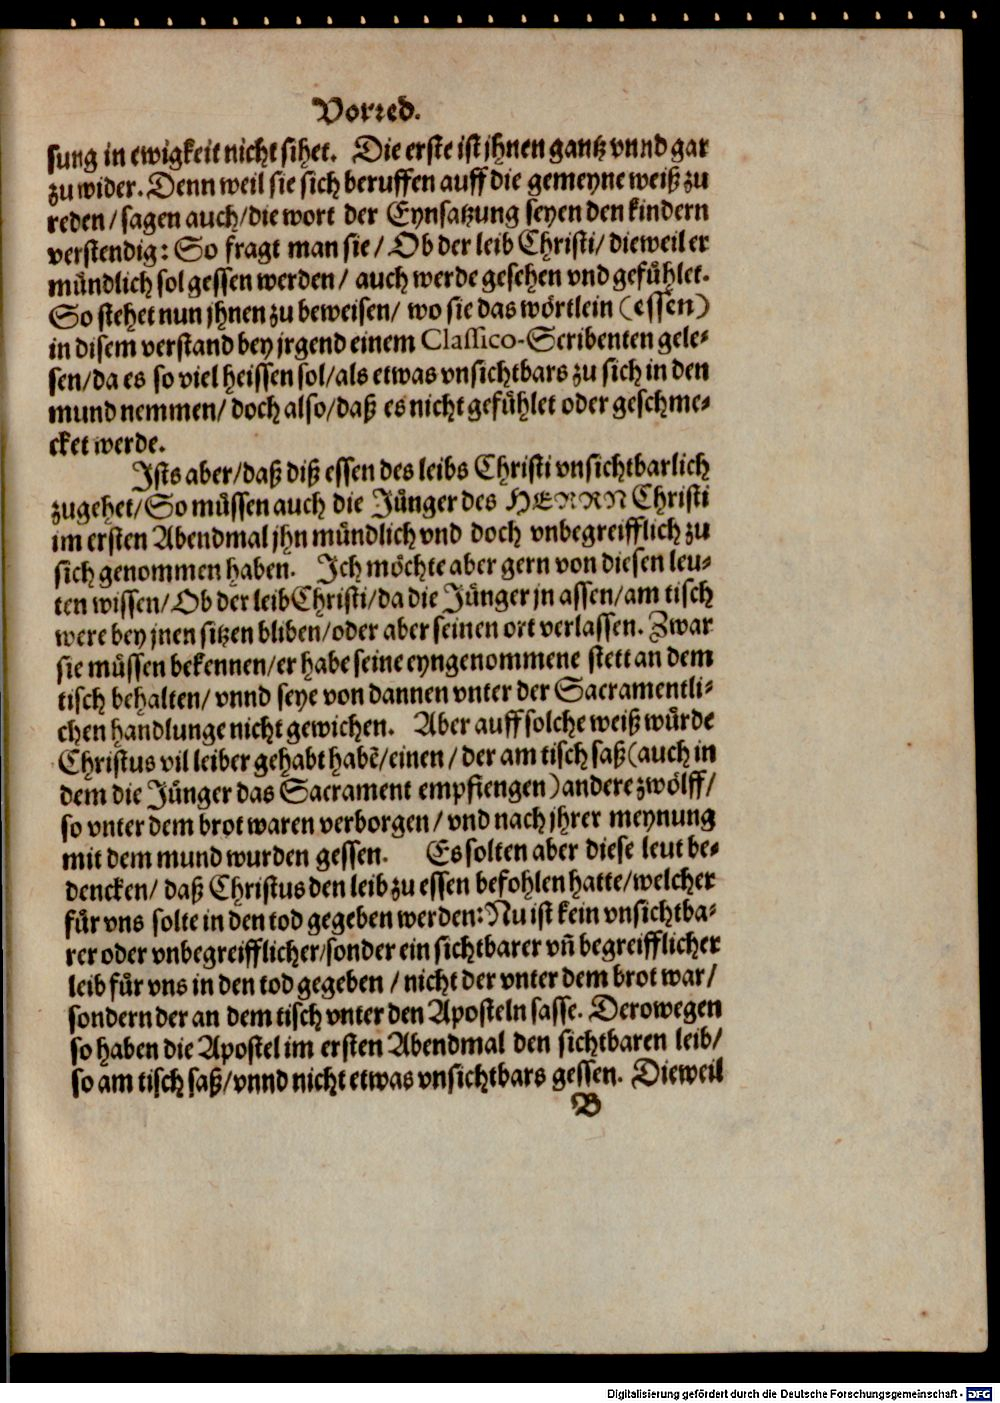 Vorred.
sung in ewigkeit nicht sihet. Die erste ist jhnen gantz vnnd gar
zu wider. Denn weil sie sich beruffen auff die gemeyne weiß zu
reden / sagen auch / die wort der Eynsatzung seyen den kindern
verstendig: So fragt man sie / Ob der leib Christi / dieweil er
mündlich sol gessen werden / auch werde gesehen vnd gefühlet.
So stehet nun jhnen zu beweisen / wo sie das wörtlein (essen)
in disem verstand bey jrgend einem Classico-Scribenten gele-
sen / da es so viel heissen sol / als etwas vnsichtbars zu sich in den
mund nemmen / doch also / daß es nicht gefühlet oder geschme-
cket werde.
Ists aber / daß diß essen des leibs Christi vnsichtbarlich
zugehet / So müssen auch die Jünger des HERRN Christi
im ersten Abendmal jhn mündlich vnd doch vnbegreifflich zu
sich genommen haben. Ich möchte aber gern von diesen leu-
ten wissen / Ob der leib Christi / da die Jünger jn assen / am tisch
were bey jnen sitzen bliben / oder aber seinen ort verlassen. Zwar
sie müssen bekennen / er habe seine eyngenommene stett an dem
tisch behalten / vnnd seye von dannen vnter der Sacramentli-
chen handlunge nicht gewichen. Aber auff solche weiß würde
Christus vil leiber gehabt habẽ / einen / der am tisch saß (auch in
dem die Jünger das Sacrament empfiengen) andere zwölff /
so vnter dem brot waren verborgen / vnd nach jhrer meynung
mit dem mund wurden gessen. Es solten aber diese leut be-
dencken / daß Christus den leib zu essen befohlen hatte / welcher
für vns solte in den tod gegeben werden: Nu ist kein vnsichtba-
rer oder vnbegreifflicher / sonder ein sichtbarer vñ begreifflicher
leib für vns in den tod gegeben / nicht der vnter dem brot war /
sondern der an dem tisch vnter den Aposteln sasse. Derowegen
so haben die Apostel im ersten Abendmal den sichtbaren leib /
so am tisch saß / vnnd nicht etwas vnsichtbars gessen. Dieweil
B
Digitalisierung gefördert durch die Deutsche Forschungsgemeinschaft - DFG